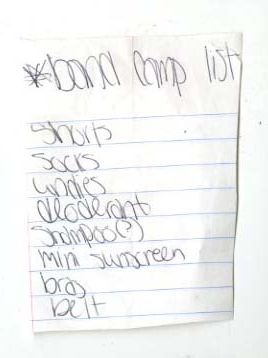 *band camp list
shorts
socks
undies
deoderant
shampoo(?)
mini sunscreen
bras
belt